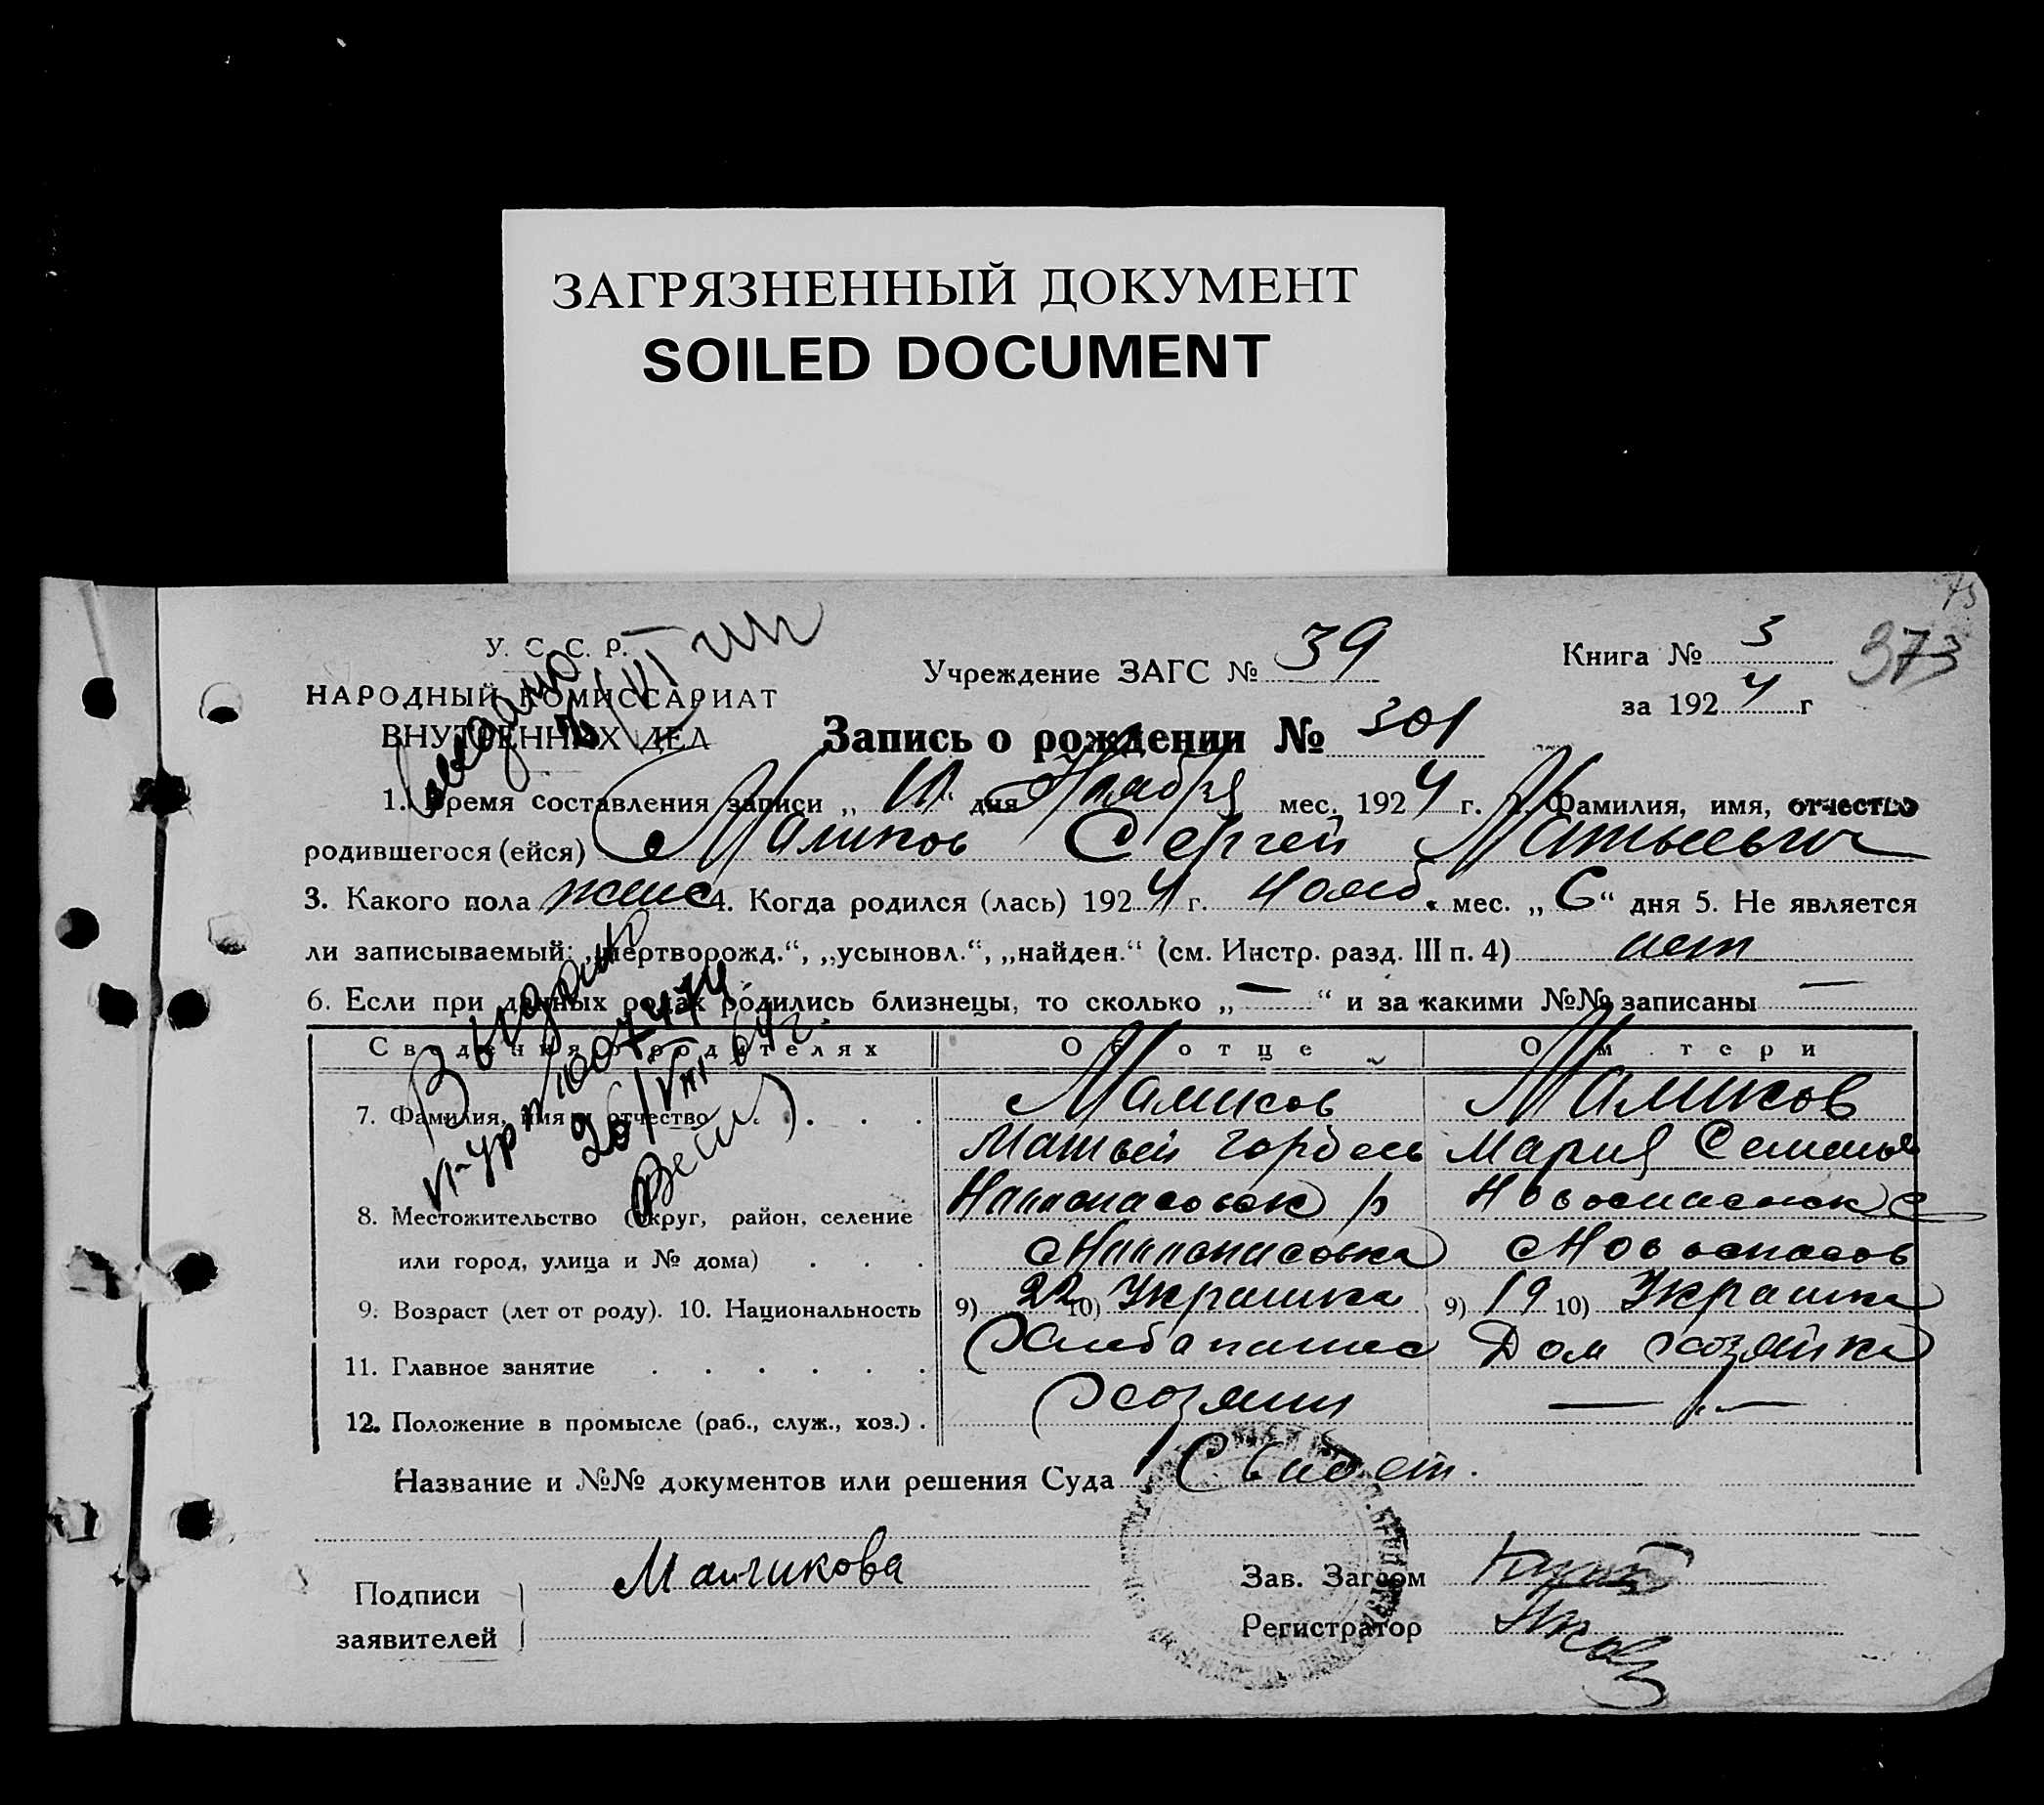 ЗАГРЯЗНЕННЫЙ ДОКУМЕНТ
SOILED DOCUMENT
У. С. С. Р.
НАРОДНЫЙ КОМИССАРИАТ
ВНУТРЕННИХ ДЕЛ
Учреждение ЗАГС № 39
Книга № 3
373
за 1924 г
Запись о рождении № 301
1. Время составления записи „ 10 “ дня Ноября мес. 1924 г. 2. Фамилия, имя, отчество
родившегося (ейся) Маликов Сергей Матвеевич
3. Какого пола 4. Когда родился (лась) 1924 г. нояб. мес. „ 6 “ дня 5. Не является
ли записываемый: „мертворожд.“, „усыновл.“, „найден.“ (см. Инстр. разд. III п. 4) нет
6. Если при данных родах родились близнецы, то сколько „ — “ и за какими №№ записаны —
Выдано
26/VIII
Сведения о родителях Об отце О матери
7. Фамилия, имя и отчество . . . . Маликов Маликов
Матвей Мария
8. Местожительство (округ, район, селение
или город, улица и № дома) . . .
9. Возраст (лет от роду). 10. Национальность 9) 22 10) Украинка 9) 19 10) Украинка
11. Главное занятие . . . . . . Дом хозяйка
12. Положение в промысле (раб., служ., хоз.) . Хозяин
Название и №№ документов или решения Суда Свидет.
Подписи
заявителей
Маликова
Зав. Загсом
Регистратор